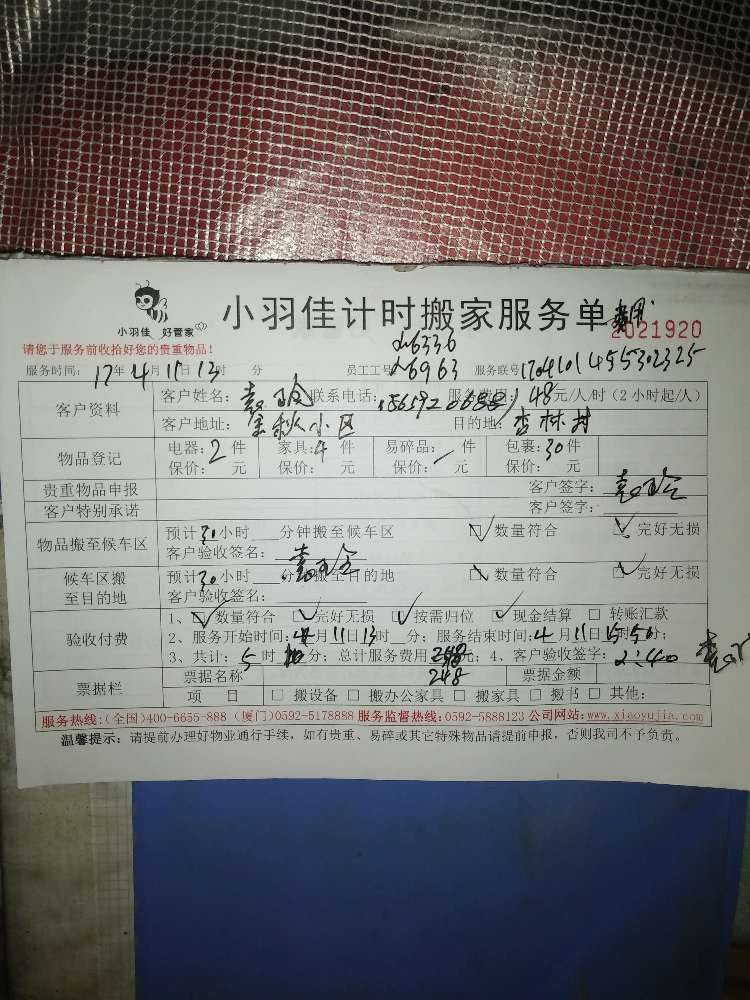 小羽佳 好管家
小羽佳计时搬家服务单
2021920
请您于服务前收拾好您的贵重物品！
d6336
服务时间：17年4月11日13时 分 员工工号 d6963 服务联号
客户资料 客户姓名： 联系电话： 服务费用：148元/人/时（2小时起/人）
客户地址： 秋小区 目的地：杏林村
物品登记 电器：2件 家具：4件 易碎品： 件 包裹：30件
保价： 元 保价： 元 保价： 元 保价： 元
贵重物品申报 客户签字：
客户特别承诺 客户签字：
物品搬至候车区 预计 小时 分钟搬至候车区 ☑数量符合 ☑完好无损
客户验收签名：
候车区搬至目的地 预计 小时 分钟搬至目的地 ☑数量符合 ☑完好无损
客户验收签名：
验收付费 1、☑数量符合 ☑完好无损 ☑按需归位 ☑现金结算 □ 转账汇款
2、服务开始时间：4月11日13时 分；服务结束时间：4月11日15时50分；
3、共计：5时 分；总计服务费用 元；4、客户验收签字：2:40
票据栏 票据名称 248 票据金额
项 目 □ 搬设备 □ 搬办公家具 □ 搬家具 □ 搬书 □ 其他：
服务热线：(全国)400-6655-888 (厦门)0592-5178888 服务监督热线：0592-5888123 公司网站：www.xiaoyujia.com
温馨提示：请提前办理好物业通行手续，如有贵重、易碎或其它特殊物品请提前申报，否则我司不予负责。